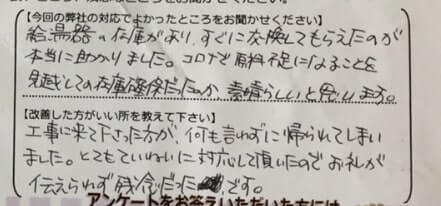 【今回の弊社の対応でよかったところをお聞かせください】
給湯器の在庫があり、すぐに交換してもらえたのが
本当に助かりました。コロナで原料不足になることを
見越しての在庫確保だったのか、素晴らしいと思います。
【改善した方がいい所を教えて下さい】
工事に来て下さった方が、何も言わずに帰られてしまい
ました。とてもていねいに対応して頂いたのでお礼が
伝えられず残念だった です。
アンケートをお答えいただいた方には